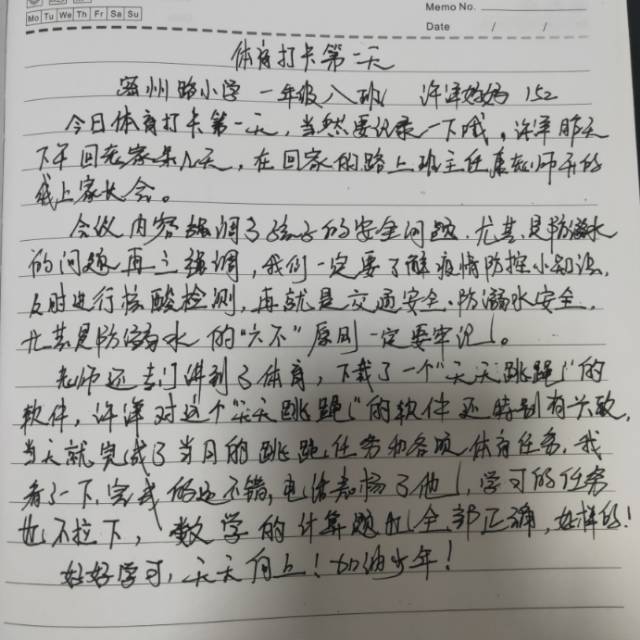 Mo Tu We Th Fr Sa Su
Memo No.
Date / /
体育打卡第一天
温州路小学 一年级八班 许泽妈妈 152
今日体育打卡第一天，当然要记录一下哦，许泽昨天
下午回老家呆几天，在回家的路上班主任唐老师开的
线上家长会。
会议内容强调了孩子的安全问题，尤其是防溺水
的问题再三强调，我们一定要了解疫情防控小知识，
及时进行核酸检测，再就是交通安全.防溺水安全，
尤其是防溺水的"六不"原则一定要牢记！。
老师还专门讲到了体育，下载了一个"天天跳绳"的
软件，许泽对这个"天天跳绳"的软件还特别有兴致，
当天就完成了当日的跳绳任务和各项体育任务，我
看了一下，完成的还不错，电话表扬了他！，学习的任务
也不拉下，数学的计算题也全部正确，好样的！
好好学习，天天向上！加油少年！